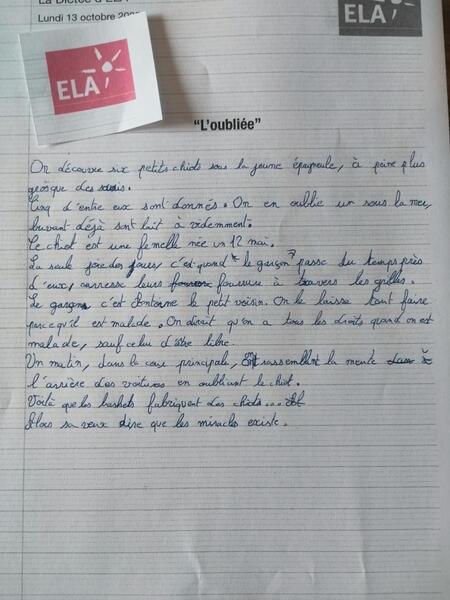 La Dictée d'ELA
Lundi 13 octobre
ELA
ELA
"L'oubliée"
On découvre six petits chiots sous la jeune épagneule, à peine plus
grosque des souris.
Cinq d'entre eux sont donnés. On en oublie un sous la mer,
buvant déjà sont lait à videmment.
Le chiot est une femelle née un 12 mai.
La seule joie des jours, c'est quand le garçon passe du temps près
d'eux, carresse leurs fourrure à travers les grilles.
Le garçon c'est dentonne le petit voisin. On le laisse tout faire
parcequ'il est malade. On dirait qu'on a tous les droits quand on est
malade, sauf celui d'être libre.
Un matin, dans la cour principale, ont rassemblant la meute à
l'arrière des voitures en oubliant le chiot.
Voilà que les baskets fabriquent des chiots...
Alors sa veux dire que les miracles existe.